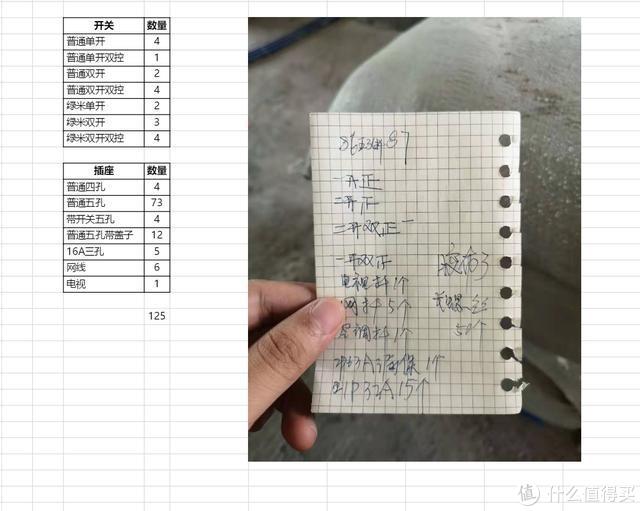 开关 数量
普通单开 4
普通单开双控 1
普通双开 2
普通双开双控 4
绿米单开 2
绿米双开 3
绿米双开双控 4
插座 数量
普通四孔 4
普通五孔 73
带开关五孔 4
普通五孔带盖子 12
16A三孔 5
网线 6
电视 1
125
87
一开正
二开正
二开双正一
二开双正
电视插1个
网插5个
空调插1个
胶布3
50个
1个
1P32A15个
值 什么值得买